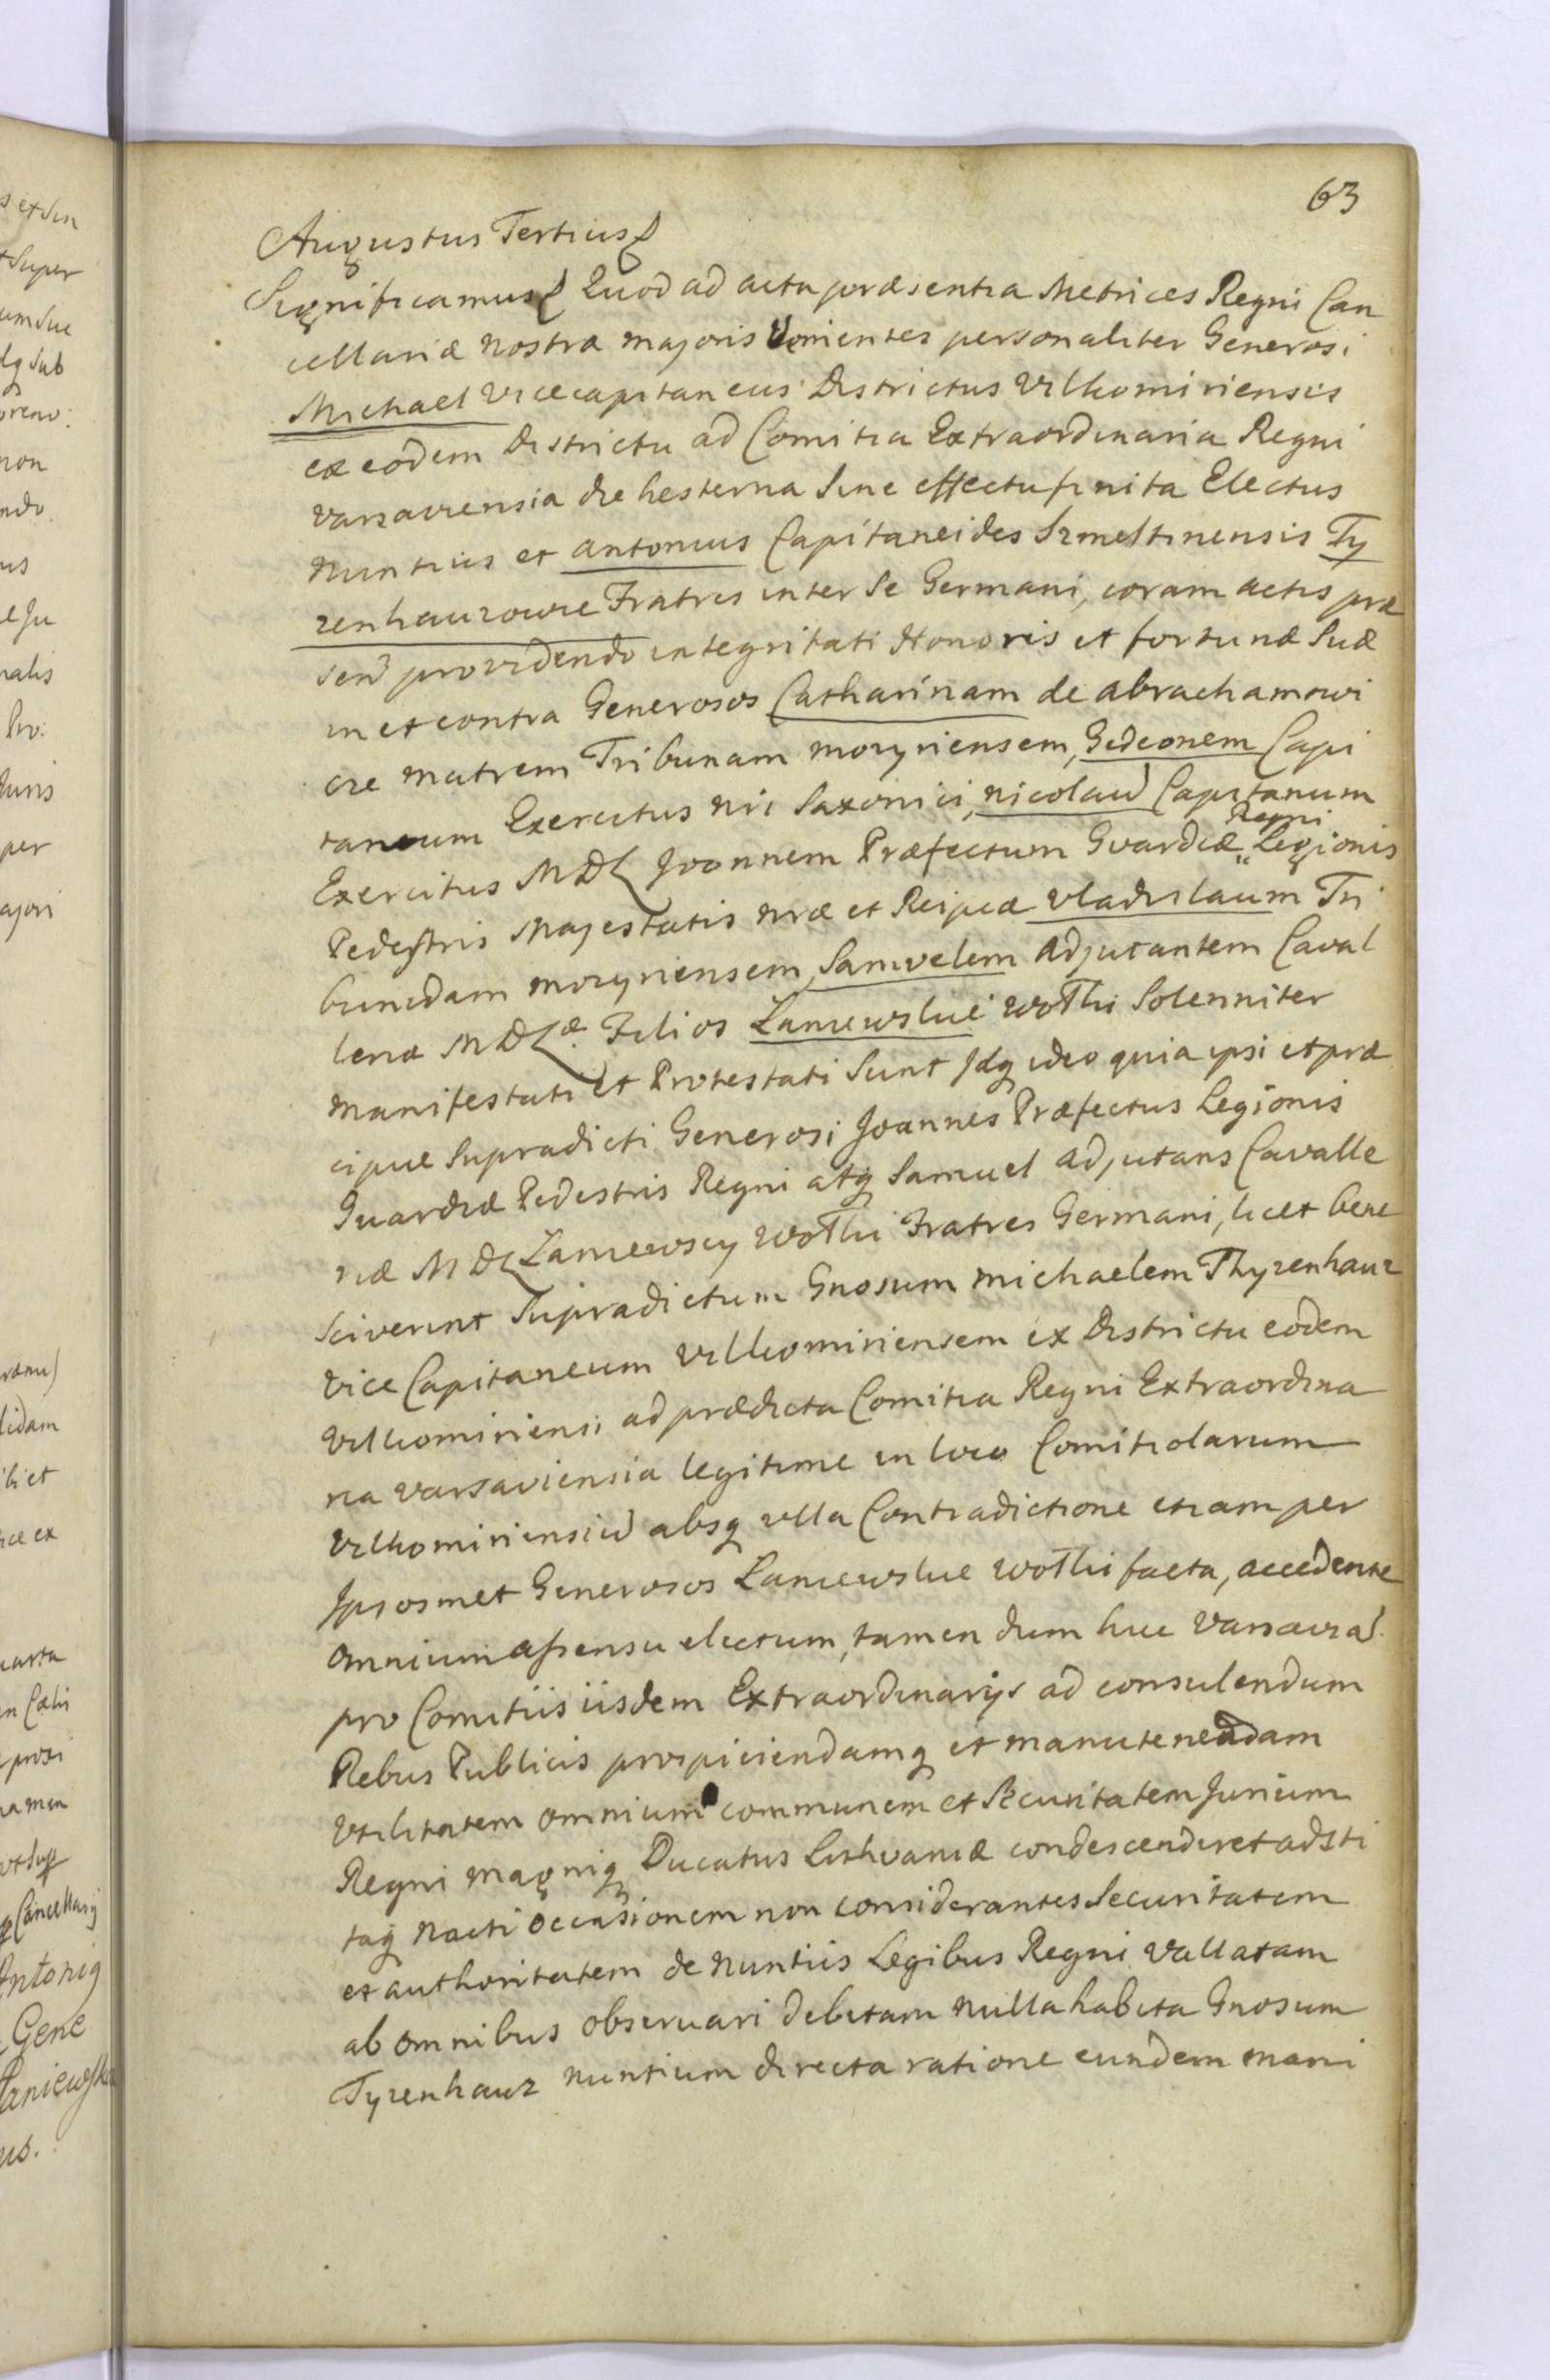 63
Augustus Tertius
Significamus Quod ad acta præsentia Metrices Regni Can
cellariæ nostræ majoris Venientes personaliter Generosi
Michael Vicecapitaneus Districtus Vilkomiriensis
ex eodem Districtu ad Comitia Extraordinaria Regni
varsaviensia die hesterna sine effectu finita Electus
Nuntius et Antonius Capitaneides Szmeltinensis Ty
zenhauzowie Fratres inter se Germani, coram actis præ
sen providendo integritati Honoris et fortunæ suæ
in et contra Generosos Catharinam de Abrachamowi
cze matrem Tribunam mozyriensem, Gedeonem Capi
taneum Exercitus nri Saxonici, nicolau Capitanum
Exercitus MDL Joannem Præfectum Gvardiæ Regni Legionis
Pedestris Majestatis nræ et Reipcæ Vladislaum Tri
bunidam mozyriensem, Samvelem Adjutantem Caval
leriæ MDLæ Filios Laniewskie Wothi Solenniter
manifestati et Protestati sunt Idq ideo quia ipsi et præ
cipue supradicti Generosi Joannes Præfectus Legionis
Guardiæ Pedestris Regni atq Samuel adjutans Cavalle
riæ MDL Laniewscy Wothi Fratres Germani, licet bene
sciverint supradictum Gnosum Michaelem Thyzenhauz
vice Capitaneum Vilkomiriensem ex Districtu eodem
Vilkomiriensi ad prædicta Comitia Regni Extraordina
ria varsaviensia legitime in loco Comitiolarum
Vilkomiriensiu absq ulla Contradictione etiam per
Ipsosmet Generosos Laniewskie Wothi facta, accedente
omnium assensu electum, tamen dum huc Varsavia
pro Comitiis iisdem Extraordinarijs ad consulendum
Rebus Publicis prospiciendamq et manutenendam
Utilitatem omnium communem et Securitatem Jurium
Regni magniq Ducatus Lithvaniæ condescenderet adsti
taq nacti occasionem non considerantes Securitatem
et authoritatem de Nuntiis Legibus Regni vallatam
ab omnibus observari debitam nulla habita Gnosum
Tyzenhauz nuntium directa ratione eundem mani